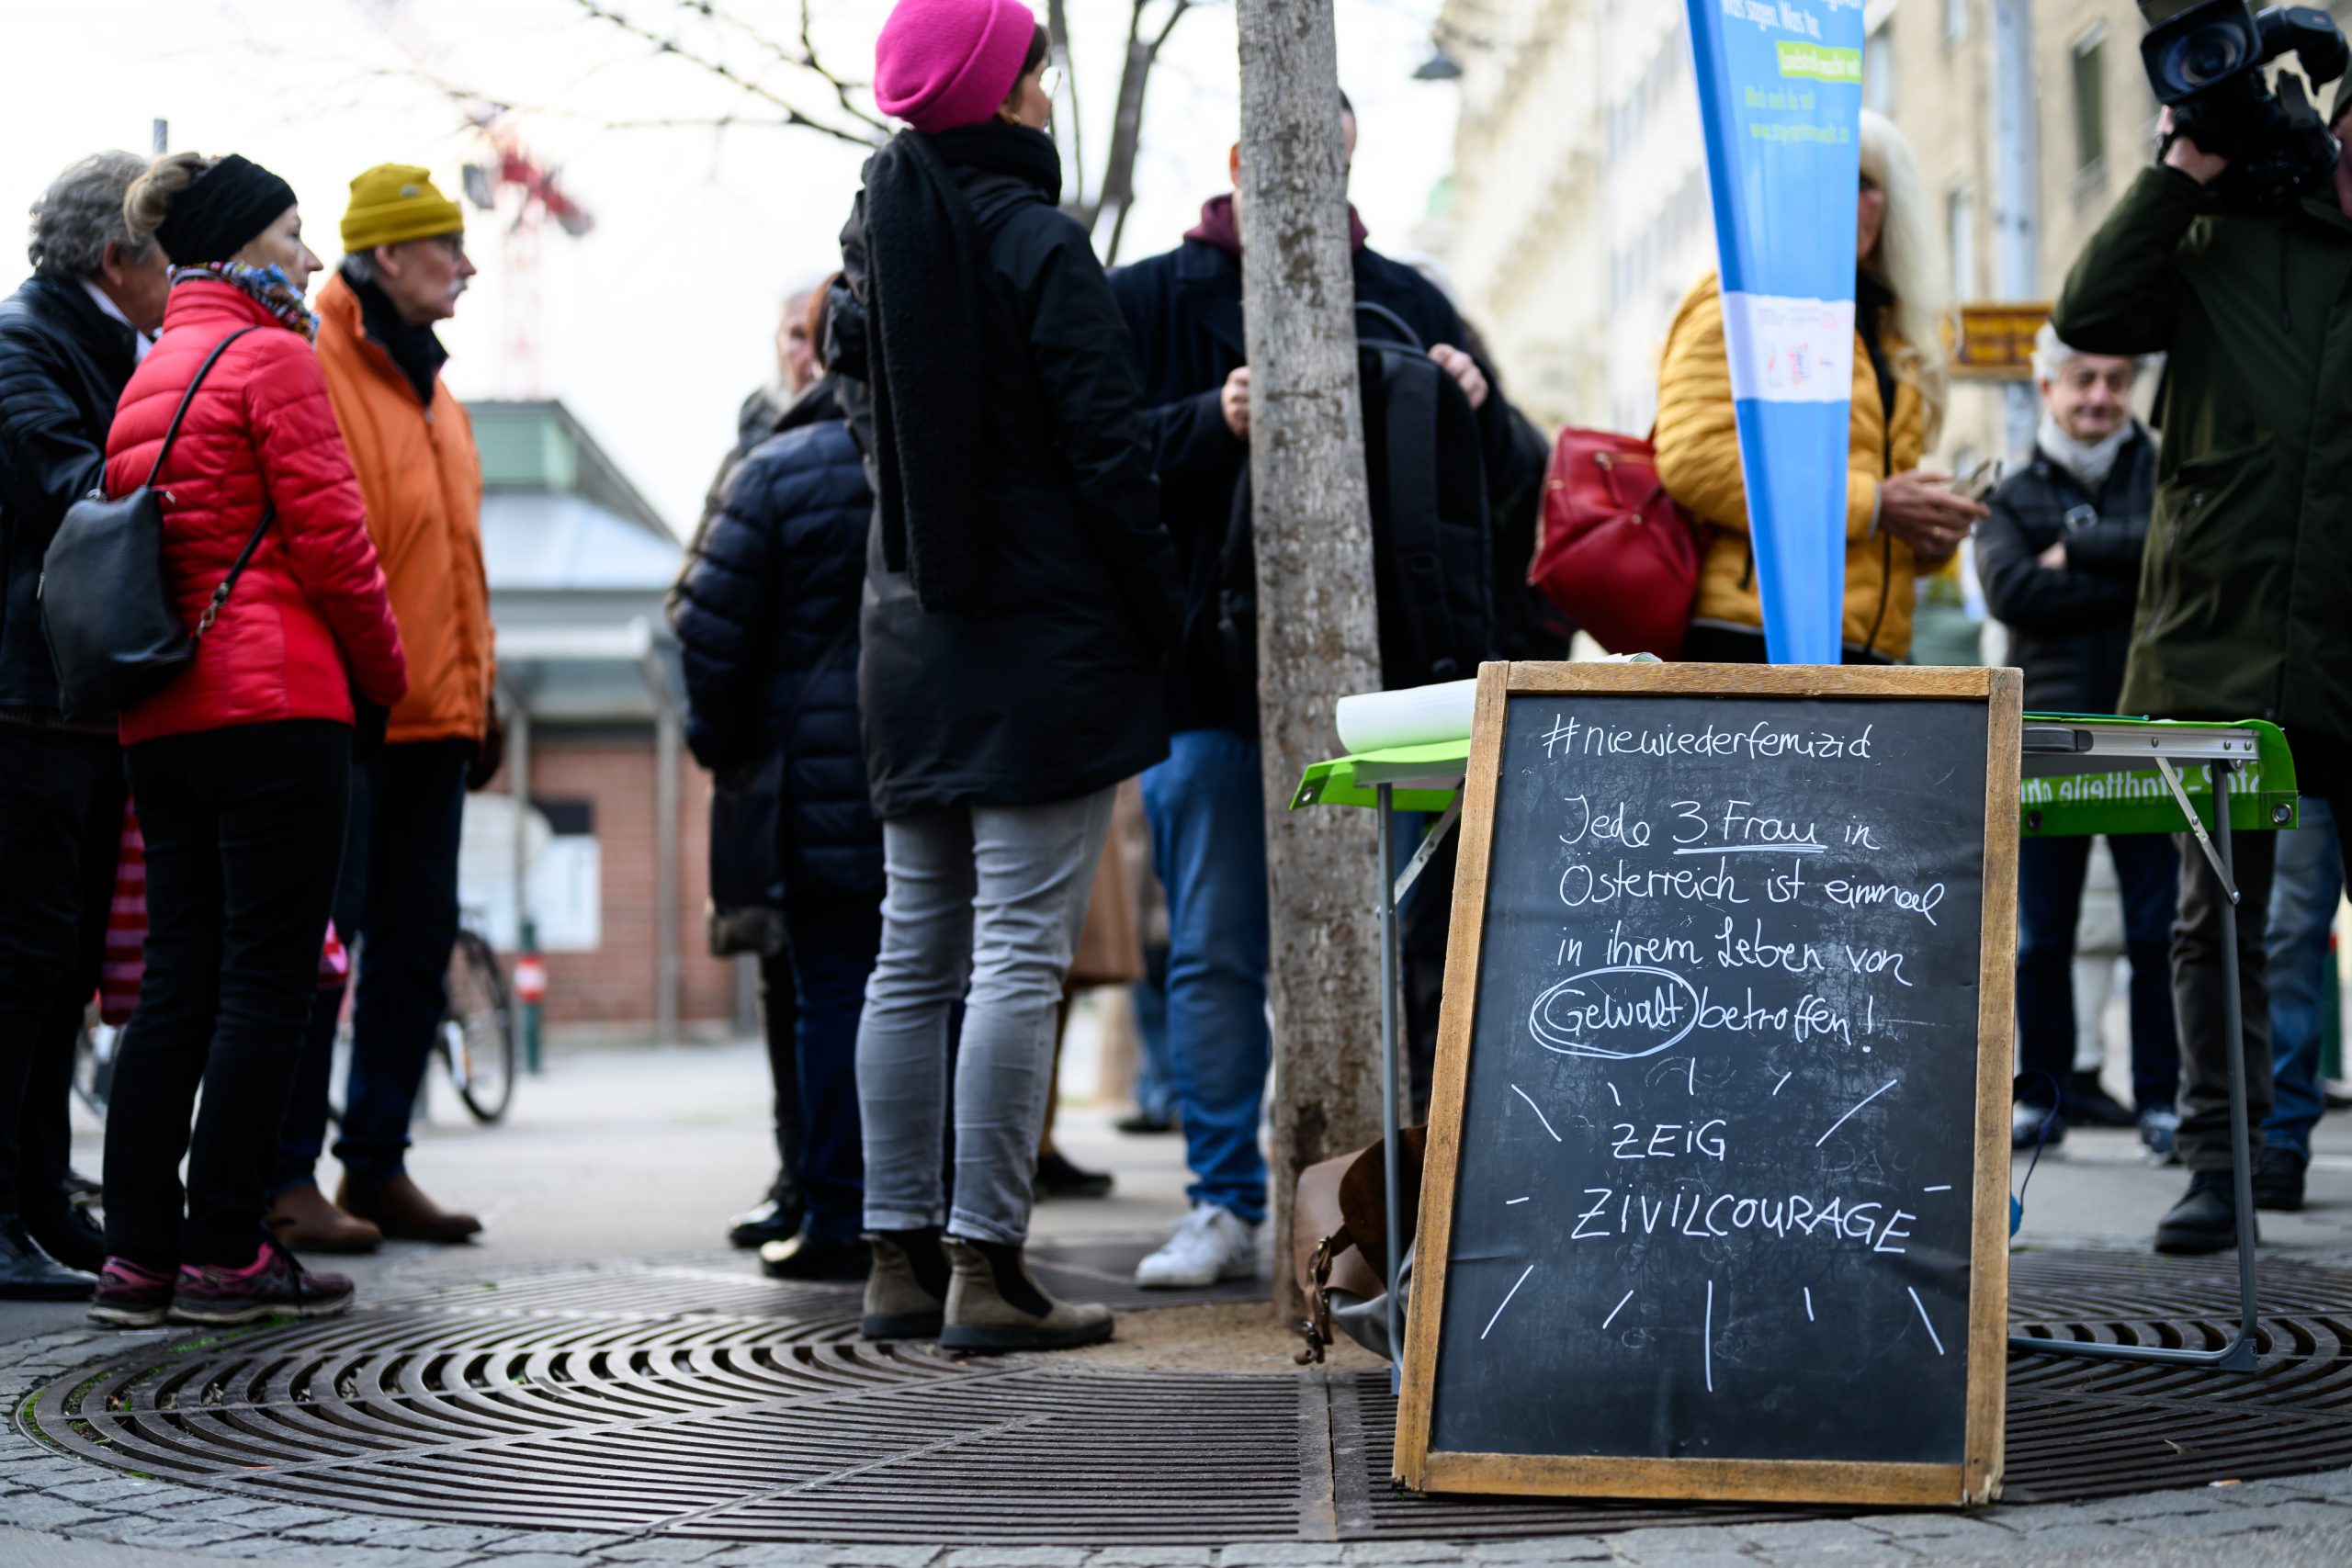 was sagen. Was tun.
#niewiederfemizid
Jede 3. Frau in
Österreich ist einmal
in ihrem Leben von
Gewalt betroffen!
ZEiG
ZiViLCOURAGE